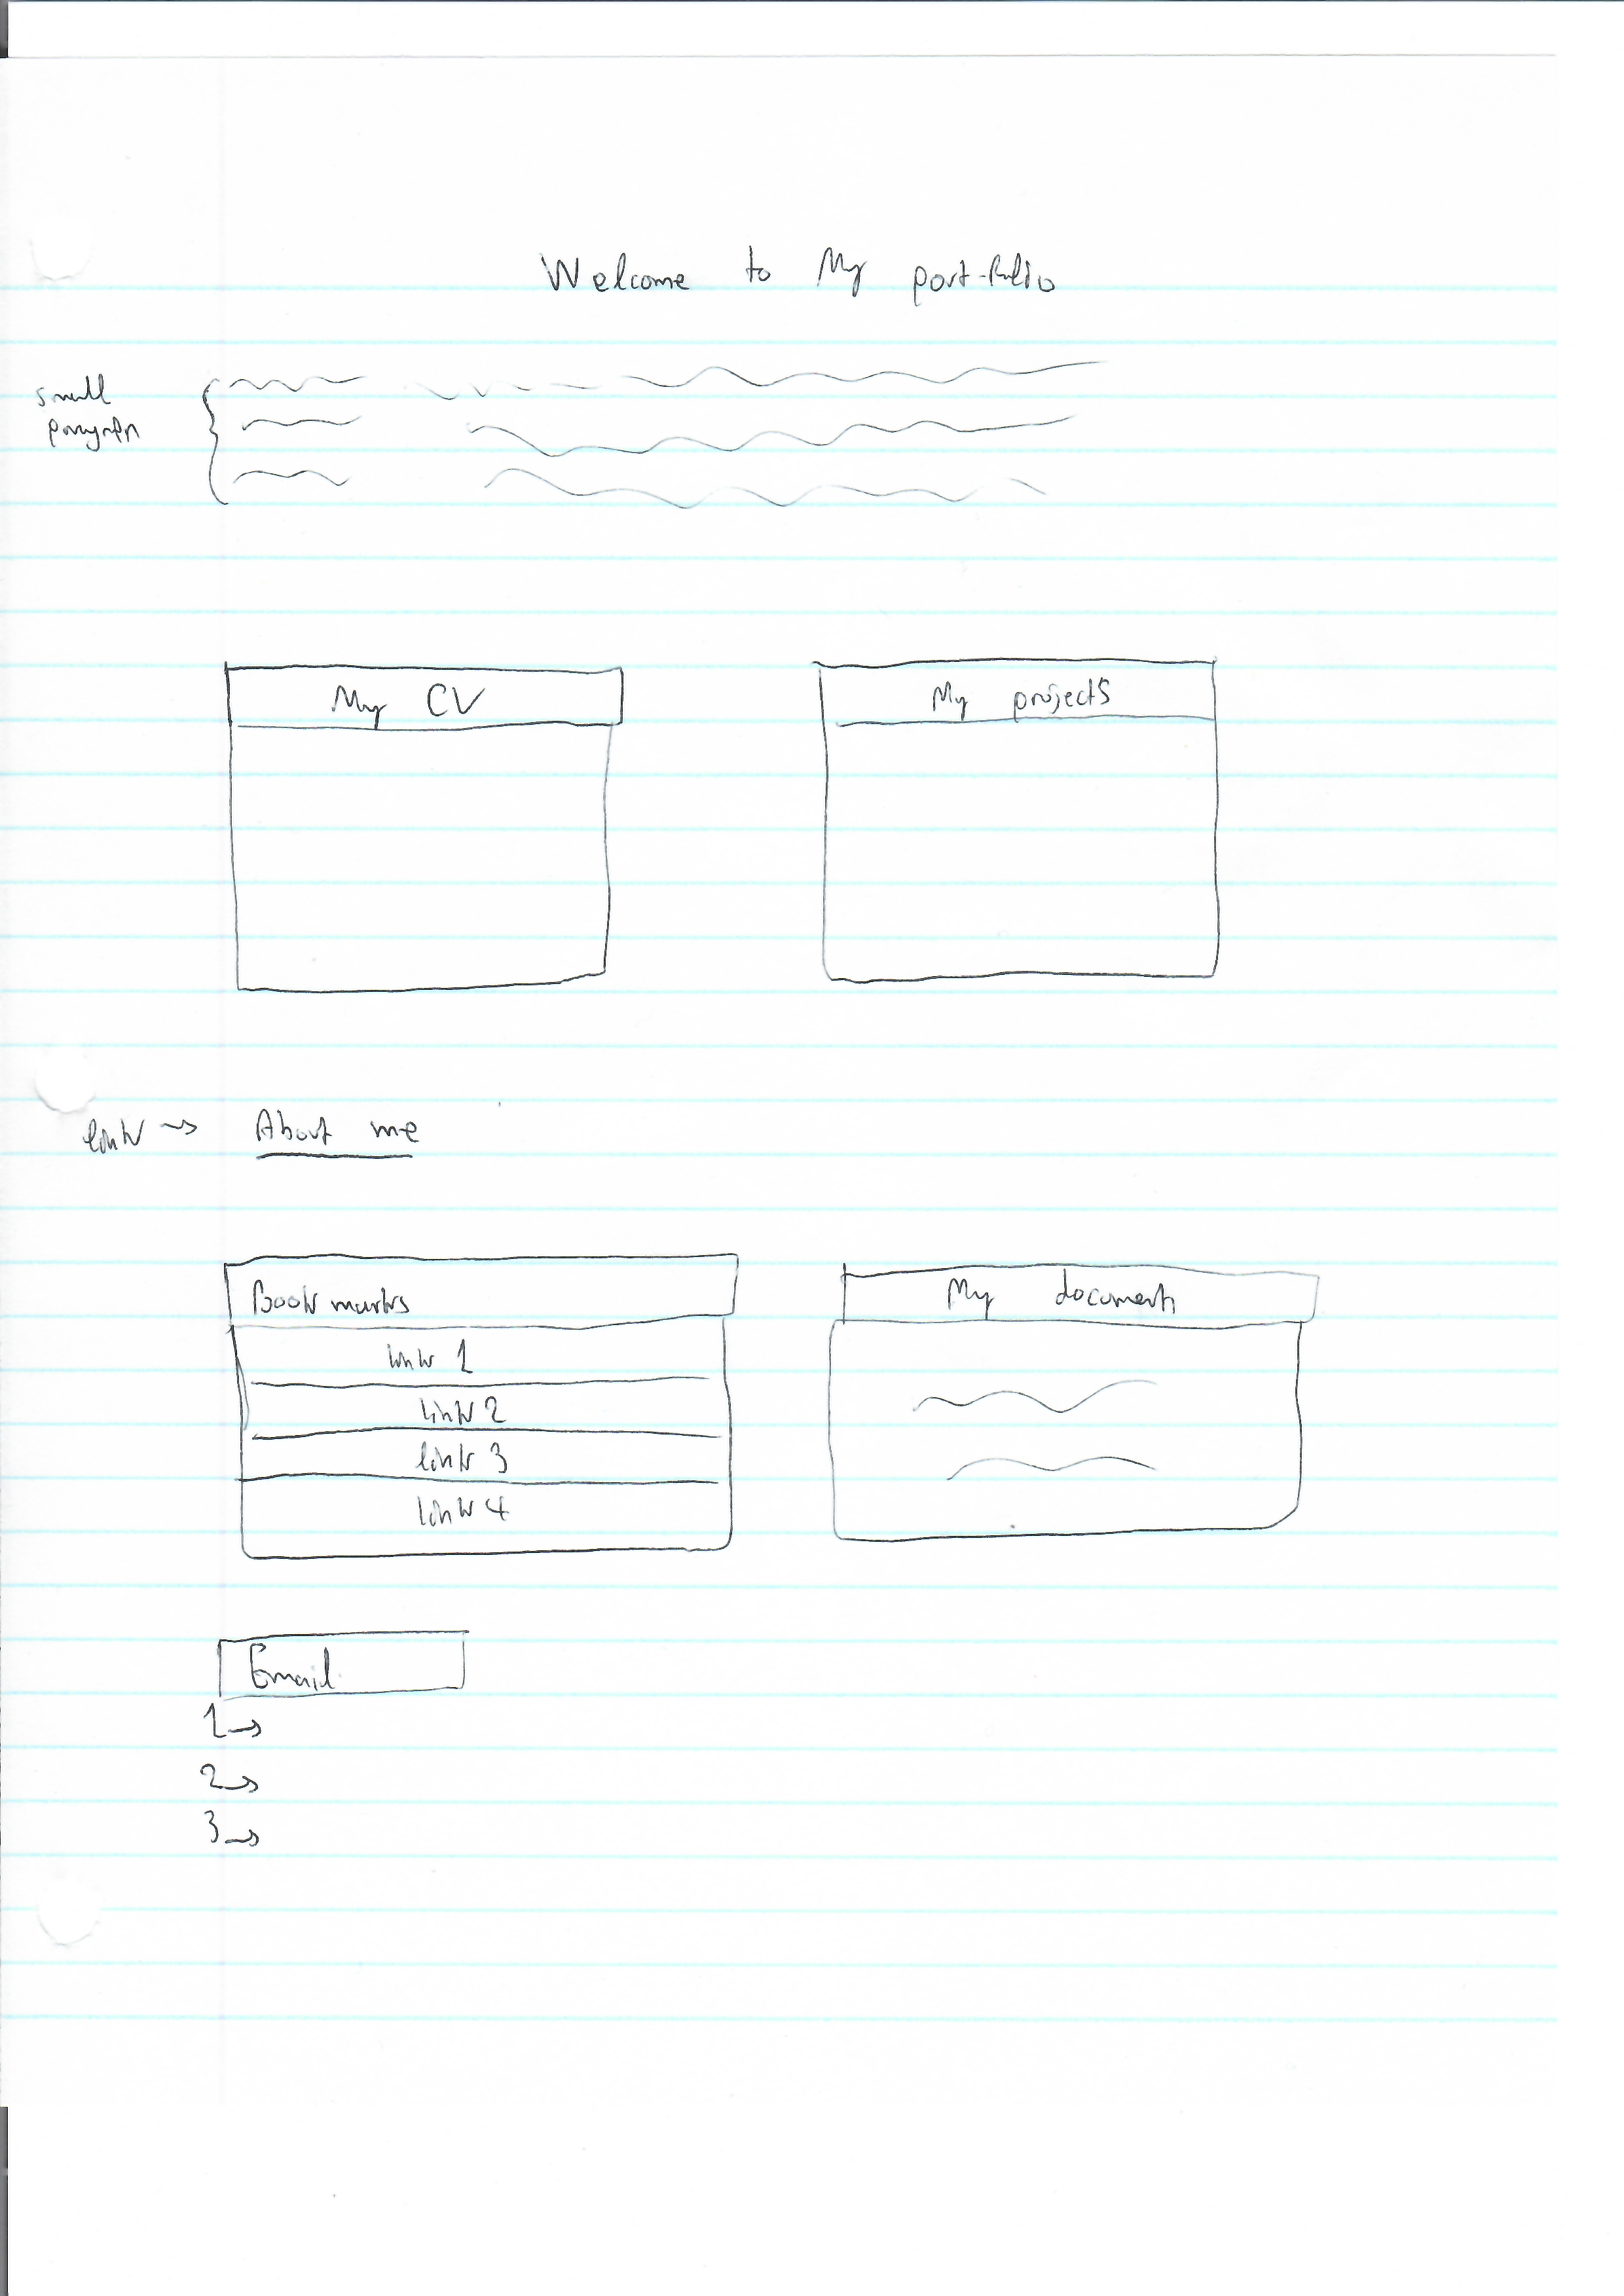 Welcome to My portfolio
small
paragraph
My CV
My projects
link → About me
Bookmarks
link 1
link 2
link 3
link 4
My documents
Email
1 →
2 →
3 →